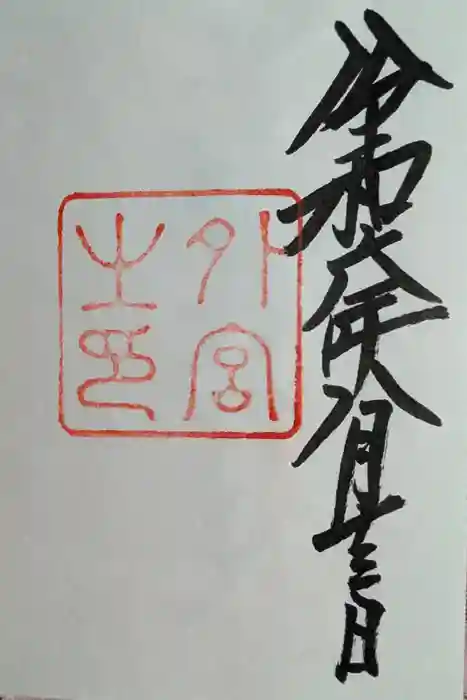 令和六年八月十三日
外宮
之印